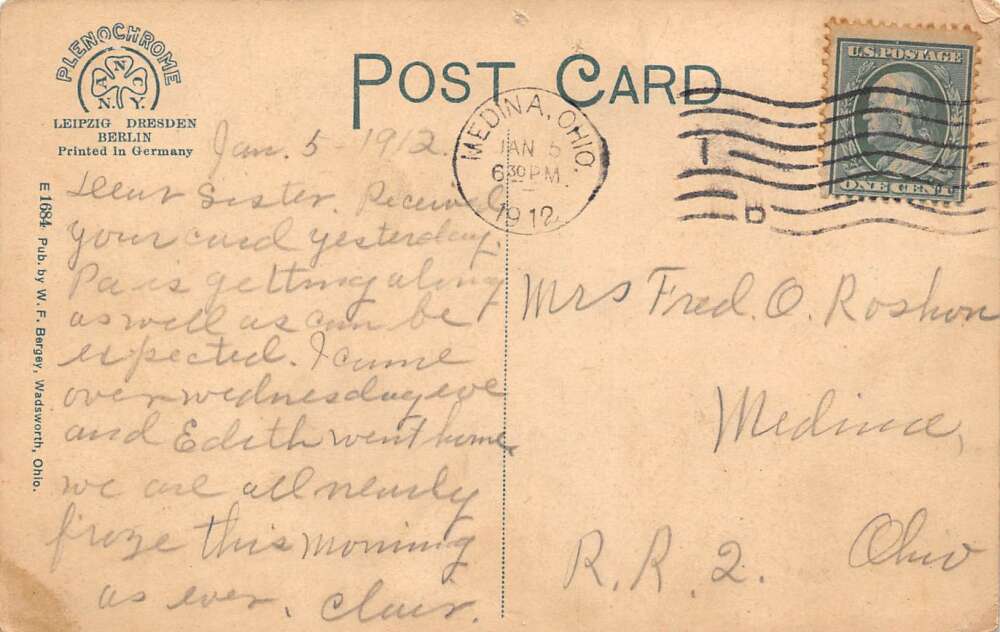 PLENOCHROME
A N C
N. Y.
LEIPZIG DRESDEN
BERLIN
Printed in Germany
POST CARD
MEDINA, OHIO.
JAN 5
6 30 PM
1912
T
D
U.S. POSTAGE
ONE CENT
E 1684 Pub. by W. F. Bergey, Wadsworth, Ohio.
Jan. 5 - 1912.
Dear Sister. Received
your card yesterday,
Pa is getting along
as well as can be
expected. I came
over wednesday eve
and Edith went home
we are all nearly
froze this morning
as ever. Clair.
Mrs Fred. O. Roshon
Medina,
R. R. 2. Ohio